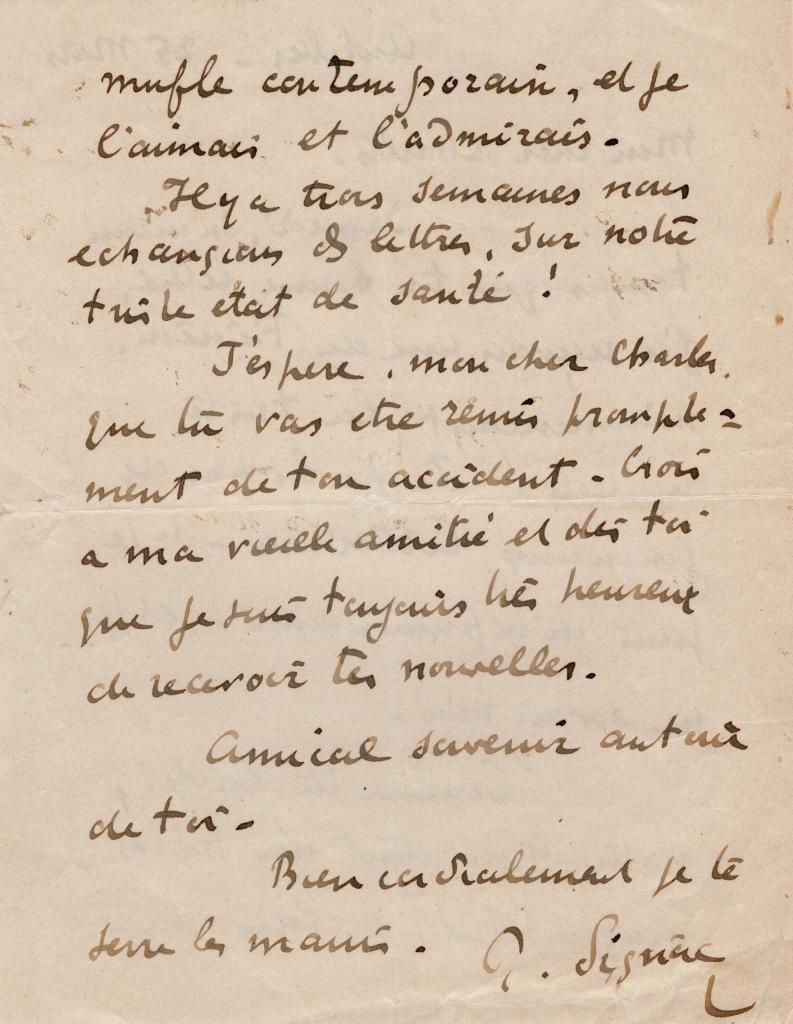 mufle contemporain, et je
l'aimais et l'admirais.
Il y a trois semaines nous
echangions des lettres, sur notre
triste etat de santé !
J'espere, mon cher Charles,
que tu vas etre remis prompte=
ment de ton accident. Crois
a ma vieille amitié et dis toi
que je suis toujours très heureux
de recevoir tes nouvelles.
Amical souvenir autour
de toi.
Bien cordialement je te
serre les mains. P. Signac